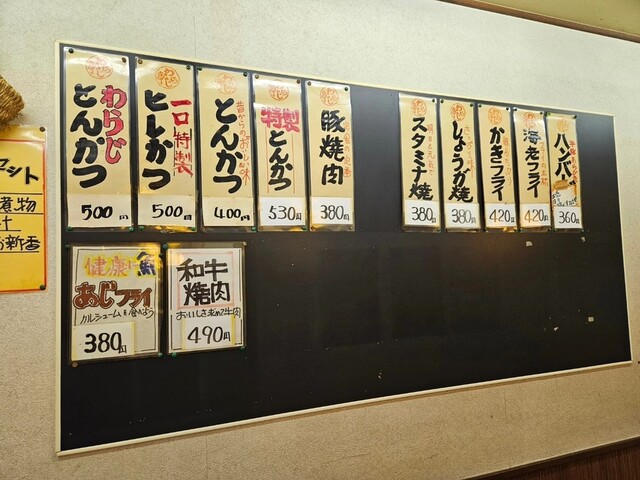 わらじ
とんかつ
500円
一口特製
ヒレかつ
500円
昔からのおいしい味
とんかつ
400円
特製
とんかつ
530円
豚焼肉
380円
スタミナ焼
380円
しょうが焼
380円
かきフライ
420円
海老フライ
420円
ハンバーグ
360円
健康に魚
あじフライ
カルシュームを食べよう
380円
和牛
焼肉
おいしさ求めて牛肉
490円
煮物
お新香